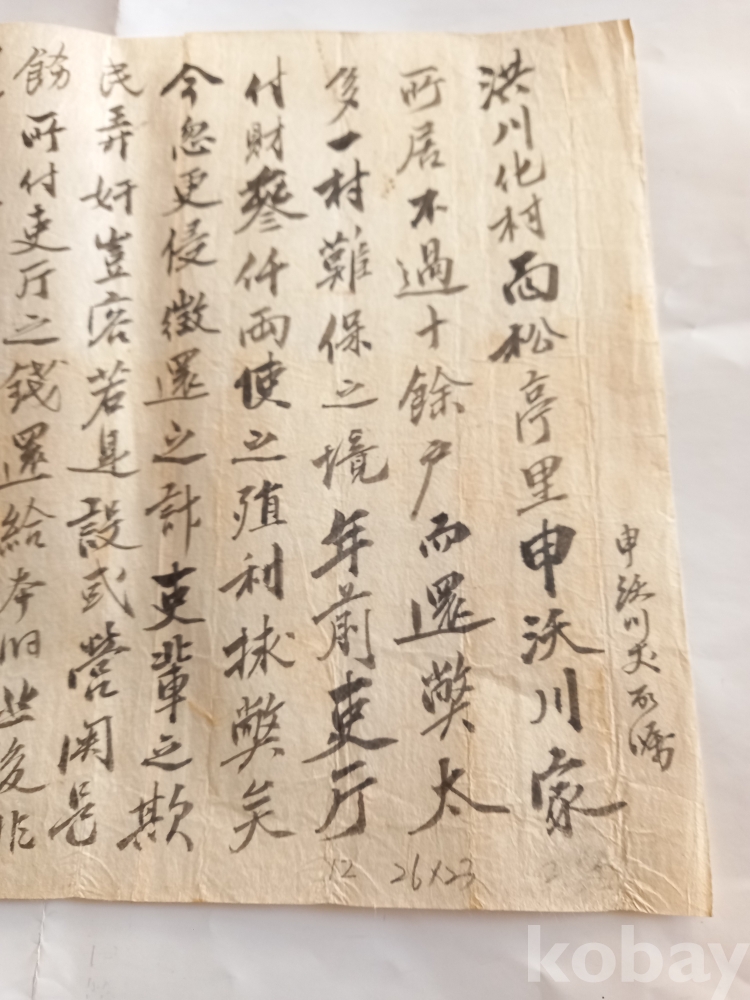 申沃川丈所囑
洪川化村面松亭里申沃川家
所居不過十餘戶而還弊太
多一村難保之境年前吏厅
付財參仟兩使之殖利捄弊矣
今忽更侵徵還之計吏輩之欺
民弄奸豈容若是設或營関
飭所付吏厅之錢還給本
26×23
kobay